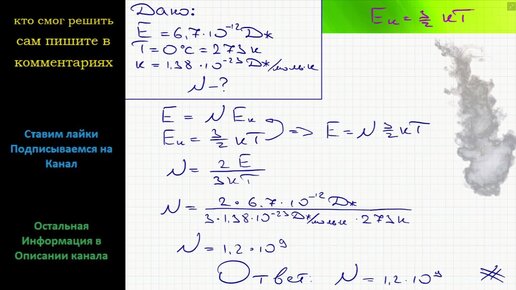 кто смог решить
сам пишите в
комментариях
Ставим лайки
Подписываемся на
Канал
Остальная
Информация в
Описании канала
Дано:
E = 6,7·10⁻¹² Дж
T = 0°C = 273 К
k = 1,38·10⁻²³ Дж/моль·К
N – ?
Eк = 3/2 kT
E = N Eк
Eк = 3/2 kT => E = N 3/2 kT
N = 2E / 3kT
N = 2·6,7·10⁻¹² Дж / 3·1,38·10⁻²³ Дж/моль·К · 273 К
N = 1,2·10⁹
Ответ: N = 1,2·10⁹